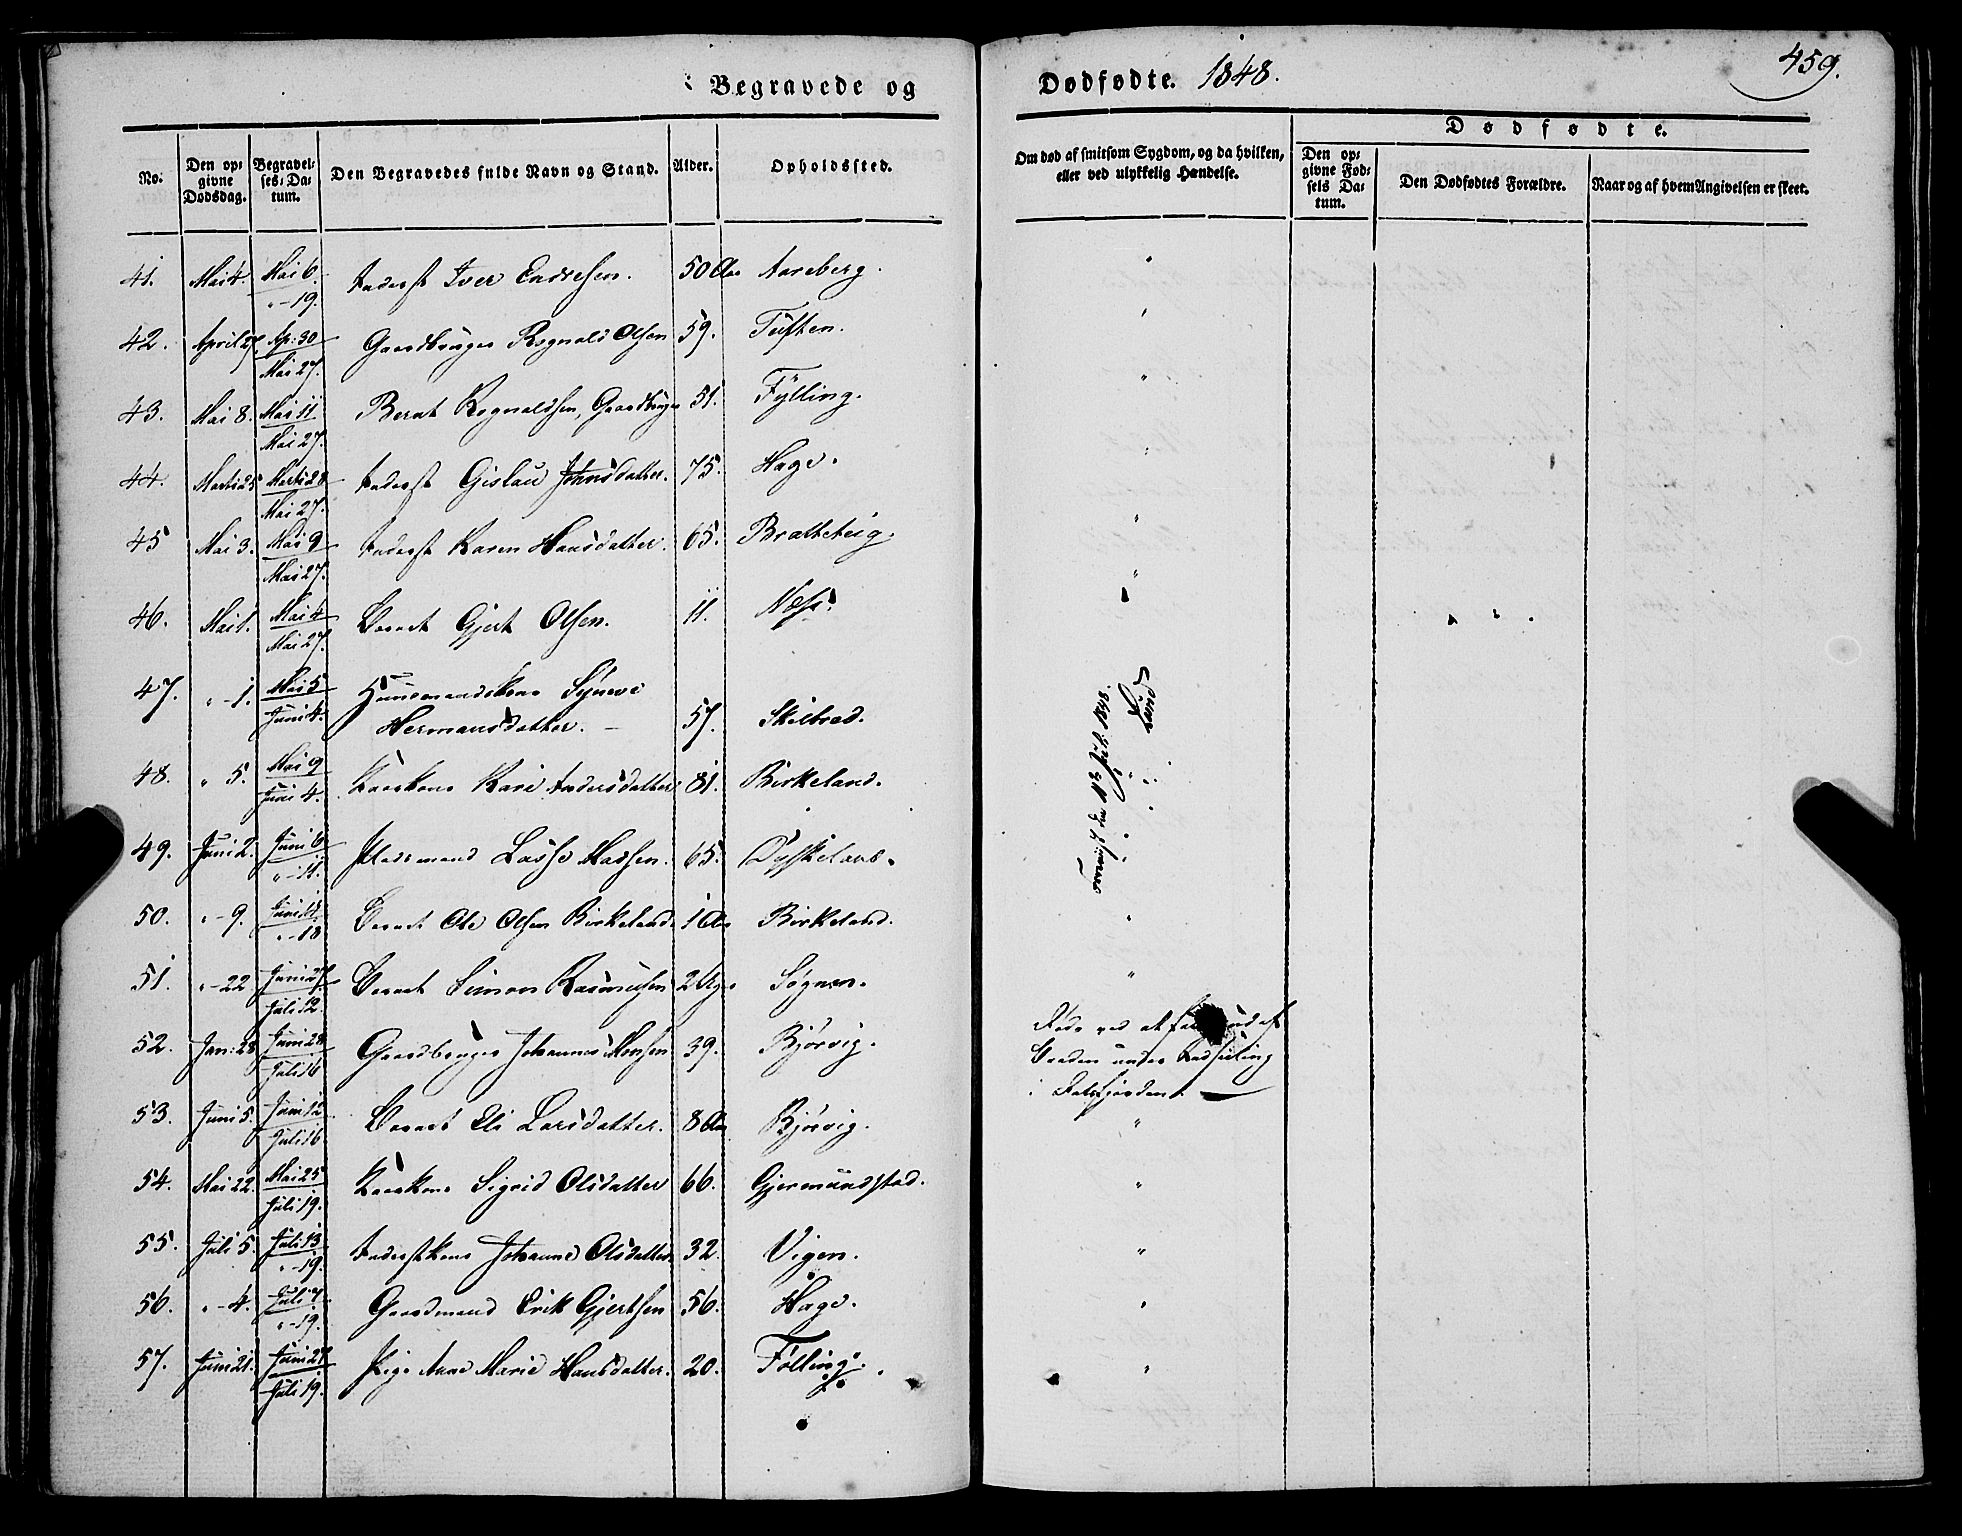 Begravede og
Dødfødte. 1848.
459.
No.
Den op=
givne
Dødsdag.
Begravel=
ses=Da=
tum.
Den Begravedes fulde Navn og Stand.
Alder.
Opholdssted.
Om død af smitsom Sygdom, og da hvilken,
eller ved ulykkelig Hændelse.
Dødfødte.
Den op=
givne Fød=
sels Da=
tum.
Den Dødfødtes Forældre.
Naar og af hvem Angivelsen er skeet.
41. Mai 4. Mai 6. Inderst Iver Endresen. 50 Aar Aareberg. "
" - 19.
42. April 27. Ap: 30 Gaardbruger Rognald Olsen 59. Tuften. "
Mai 27.
43. Mai 8. Mai 11 Bernt Rognaldsen, Gaardbruger 51. Fylling. "
Mai 27.
44. Marts 25 Marts 28 Inderst Gislau Johnsdatter. 75. Hage. "
Mai 27.
45 Mai 3. Mai 9 Inderst Karen Hansdatter. 65. Bratteteig. "
Mai 27.
46. Mai 1. Mai 4 Barnet Gjert Olsen. 11. Næss. "
Mai 27.
47. " - 1. Mai 5 Huusmandskone Synevi
Juni 4. Hermansdatter. - 57. Skilbred.
48. " 5. Mai 9 Kaarkone Kari Andersdatter 81. Birkeland.
Juni 4.
49. Juni 2. Juni 6 Pladsmand Lasse Madsen. 65.
" - 11.
Førevig den 14 Juli 1848.
Lund
50. " - 9. Juni 11. Barnet Ole Olsen Birkeland. 1 Aar Birkeland. "
" - 18
51. " - 22 Juni 27. Barnet Simon Rasmussen 2 Uger Søgnen. "
Juli 12.
52. Jan: 28 Juni 28 Gaardbruger Johannes Monsen 39. Bjørvig. Døde ved at falde ud af
Juli 16 Baaden under
i
53. Juni 5. Juni 12 Barnet Eli Larsdatter. 8 Aar Bjørvig. "
Juli 16
54. Mai 22. Mai 25 Kaarkone Sigrid Olsdatter 66. Gjermundstad. "
Juli 19.
55. Juli 5. Juli 13 Inderstkone Johanne Olsdatter 32. Vigen. "
" - 19.
56. " - 4. Juli 7 Gaardmand Erik Gjertsen 56. Hage. "
" - 19.
57. Juni 21. Juni 27 Pige Anne Marie Hansdatter. 20. Følling. "
Juli 19.